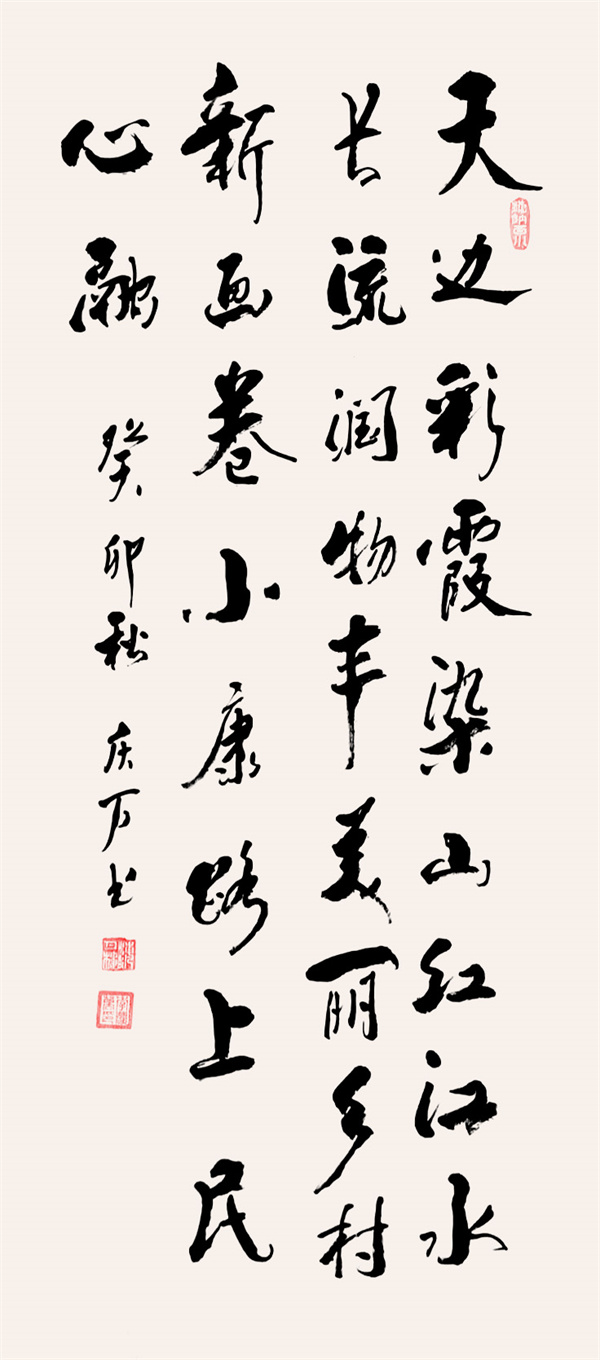 天边彩霞染山红江水
长流润物丰美丽乡村
新画卷小康路上民
心融
癸卯秋 庆万书